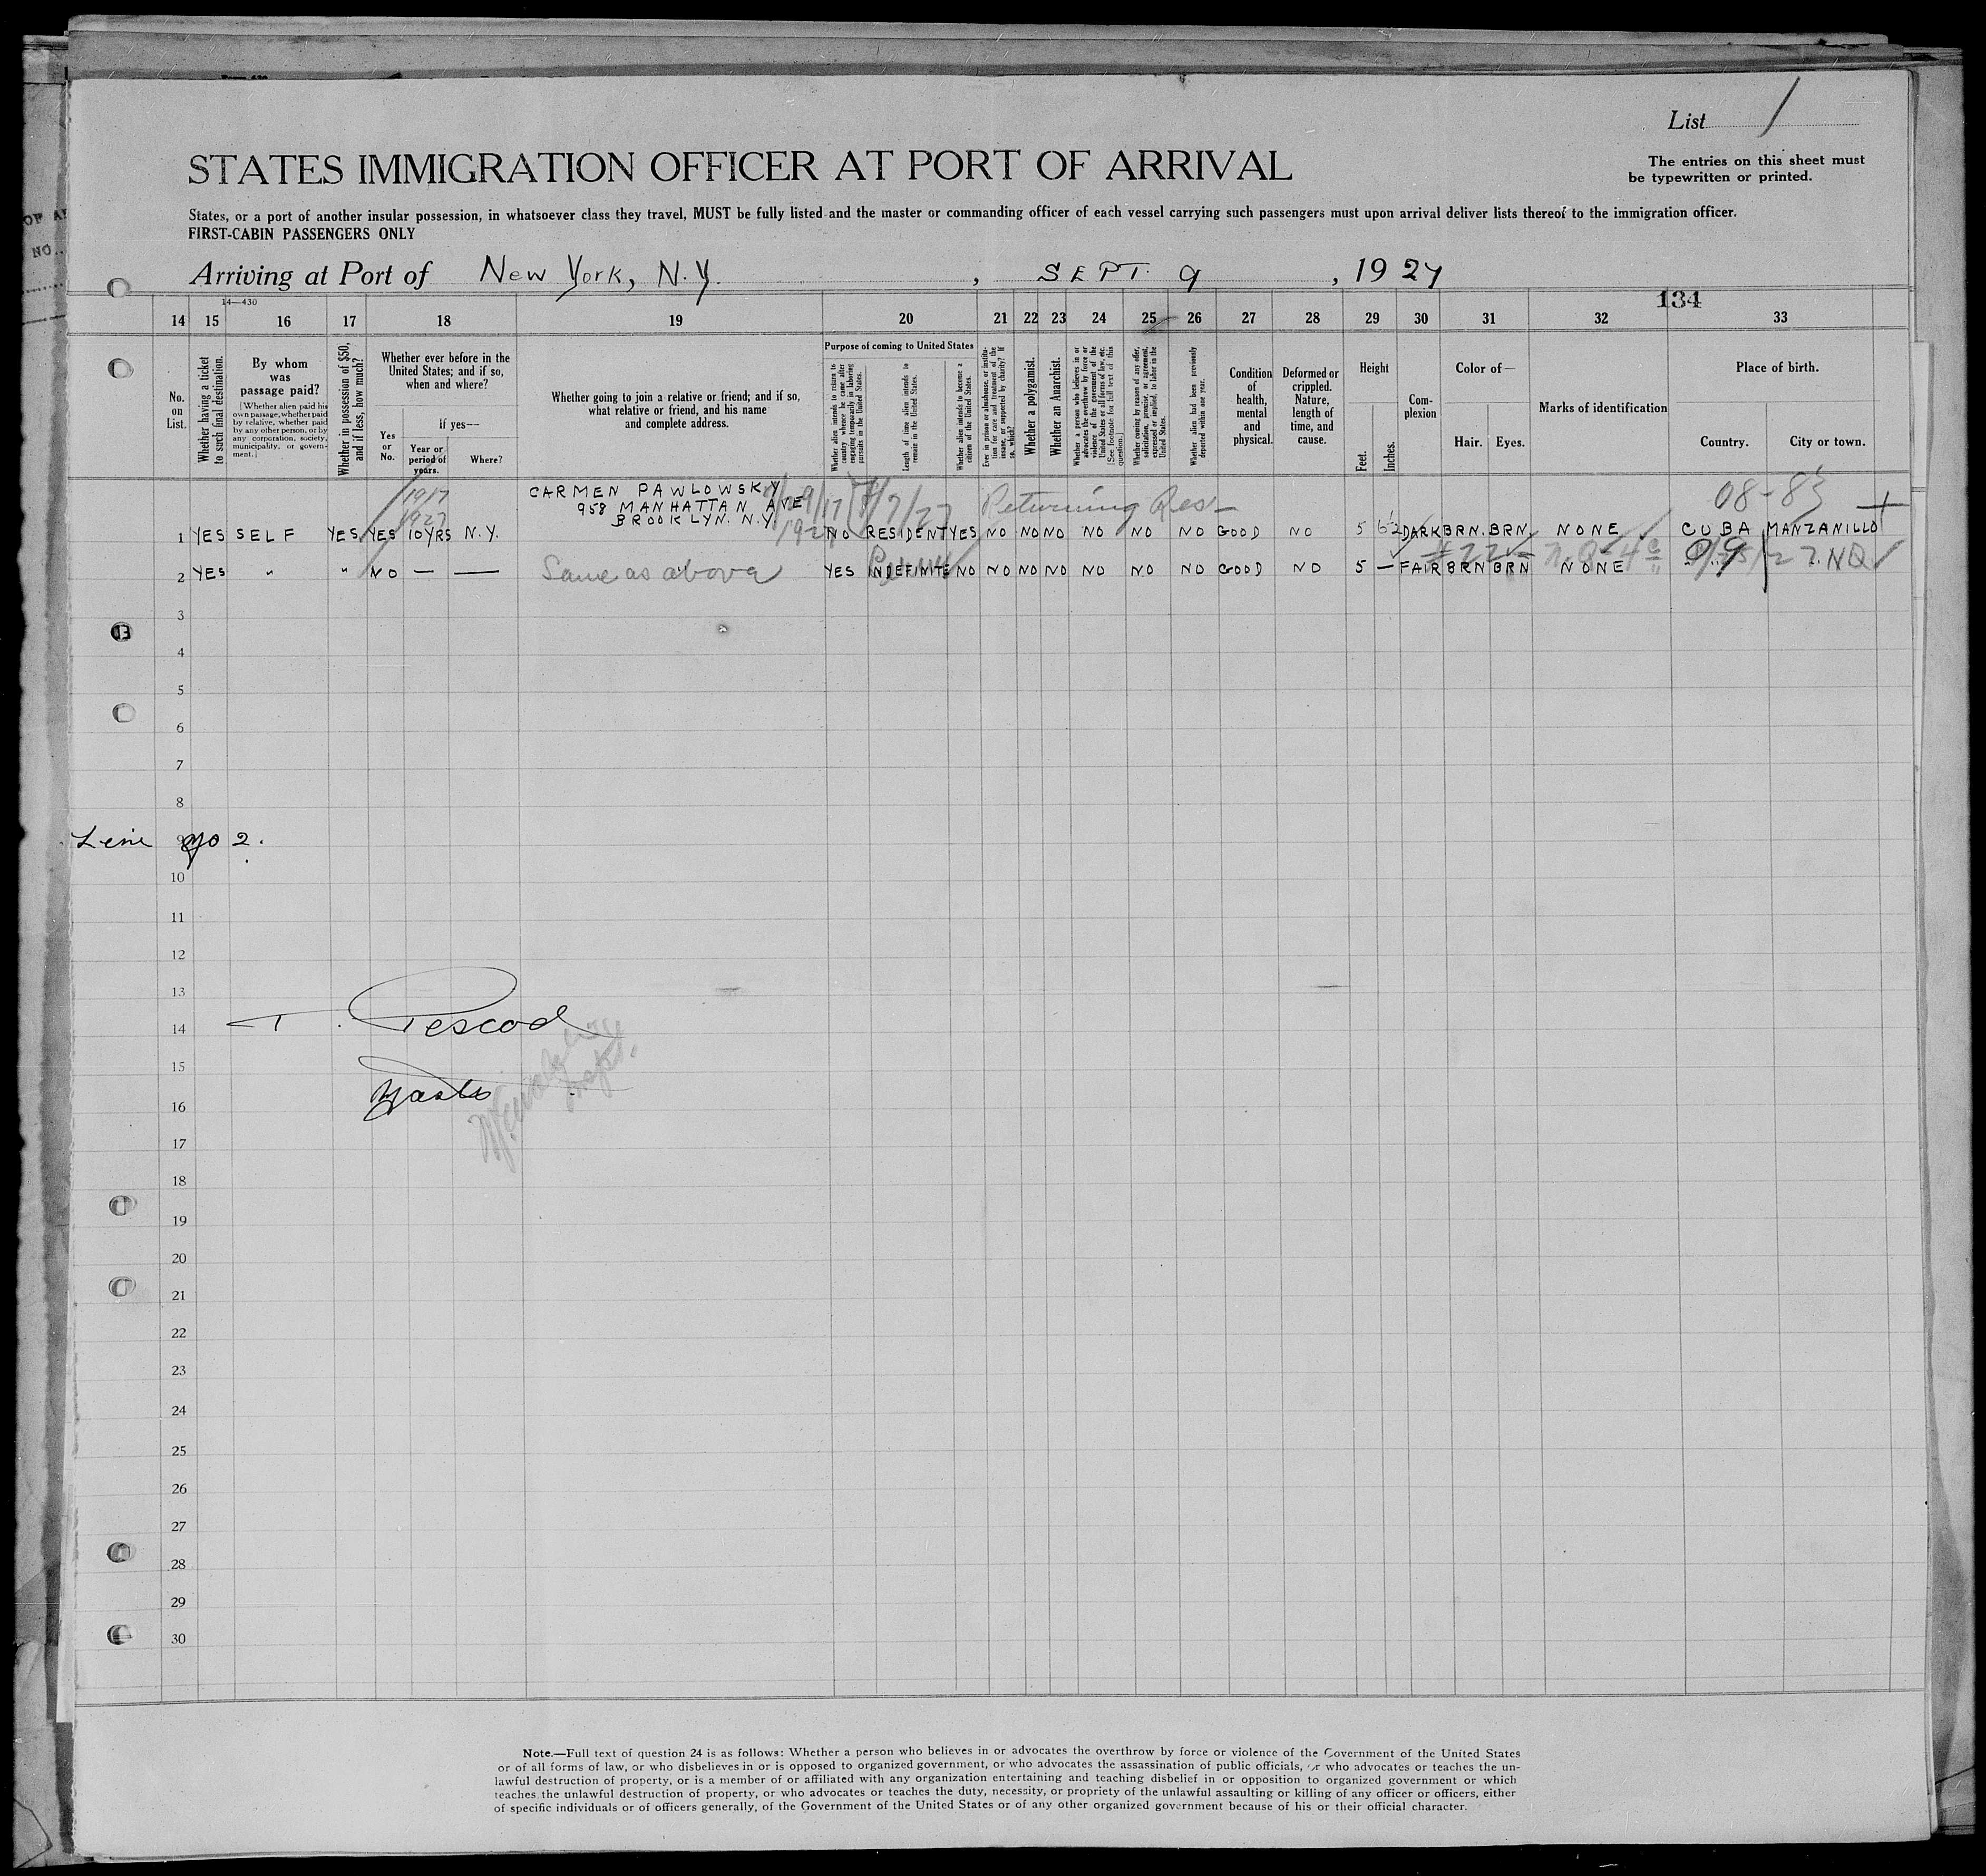 List 1
STATES IMMIGRATION OFFICER AT PORT OF ARRIVAL
The entries on this sheet must
be typewritten or printed.
States, or a port of another insular possession, in whatsoever class they travel, MUST be fully listed and the master or commanding officer of each vessel carrying such passengers must upon arrival deliver lists thereof to the immigration officer.
FIRST-CABIN PASSENGERS ONLY
Arriving at Port of New York, N.Y. , SEPT. 9 , 1927
14—430
134
14 15 16 17 18 19 20 21 22 23 24 25 26 27 28 29 30 31 32 33
No. on List.
Whether having a ticket to such final destination.
By whom was passage paid?
[Whether alien paid his own passage, whether paid by relative, whether paid by any other person, or by any corporation, society, municipality, or government.]
Whether in possession of $50, and if less, how much?
Whether ever before in the United States; and if so, when and where?
Yes or No.
If yes—
Year or period of years.
Where?
Whether going to join a relative or friend; and if so, what relative or friend, and his name and complete address.
Purpose of coming to United States
Whether alien intends to return to country whence he came after engaging temporarily in laboring pursuits in the United States.
Length of time alien intends to remain in the United States.
Whether alien intends to become a citizen of the United States.
Ever in prison or almshouse, or institution for care and treatment of the insane, or supported by charity? If so, which?
Whether a polygamist.
Whether an Anarchist.
Whether a person who believes in or advocates the overthrow by force or violence of the government of the United States or all forms of law, etc. [See footnote for full text of this question.]
Whether coming by reason of any offer, solicitation, promise, or agreement, expressed or implied, to labor in the United States.
Whether alien had been previously deported within one year.
Condition of health, mental and physical.
Deformed or crippled. Nature, length of time, and cause.
Height
Feet.
Inches.
Complexion
Color of—
Hair.
Eyes.
Marks of identification
Place of birth.
Country.
City or town.
1917
1927
CARMEN PAWLOWSKY
958 MANHATTAN AVE
BROOKLYN. N.Y.
Returning Res—
08-83
1 YES SELF YES YES 10YRS N.Y. NO RESIDENT YES NO NO NO NO NO NO GOOD NO 5 6½ DARK BRN. BRN. NONE CUBA MANZANILLO
2 YES " " NO — — Same as above YES INDEFINITE NO NO NO NO NO NO NO GOOD NO 5 — FAIR BRN BRN NONE " "
3
4
5
6
7
8
Line No 2.
9
10
11
12
13
T. Pescod
14
15
16
17
18
19
20
21
22
23
24
25
26
27
28
29
30
Note.—Full text of question 24 is as follows: Whether a person who believes in or advocates the overthrow by force or violence of the Government of the United States
or of all forms of law, or who disbelieves in or is opposed to organized government, or who advocates the assassination of public officials, or who advocates or teaches the un-
lawful destruction of property, or is a member of or affiliated with any organization entertaining and teaching disbelief in or opposition to organized government or which
teaches the unlawful destruction of property, or who advocates or teaches the duty, necessity, or propriety of the unlawful assaulting or killing of any officer or officers, either
of specific individuals or of officers generally, of the Government of the United States or of any other organized government because of his or their official character.